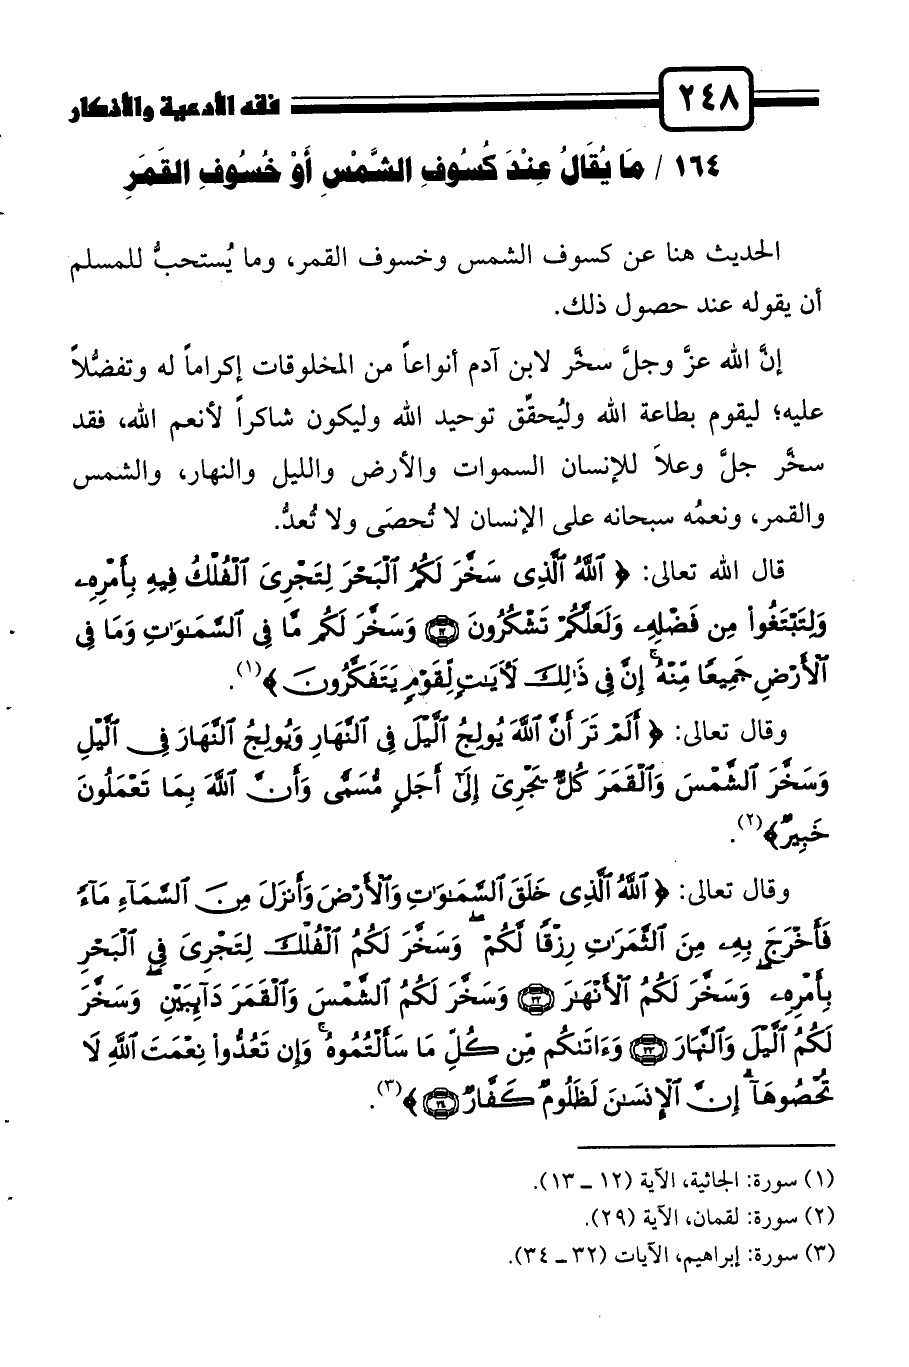 ٢٤٨ فقه الأدعية والأذكار
١٦٤ / مَا يُقَالُ عِنْدَ كُسُوفِ الشَّمْسِ أَوْ خُسُوفِ القَمَرِ
الحديث هنا عن كسوف الشمس وخسوف القمر، وما يُستحبُّ للمسلم
أن يقوله عند حصول ذلك.
إنَّ الله عزَّ وجلَّ سخَّر لابن آدم أنواعاً من المخلوقات إكراماً له وتفضُّلاً
عليه؛ ليقوم بطاعة الله وليُحقِّق توحيد الله وليكون شاكراً لأنعم الله، فقد
سخَّر جلَّ وعلاَ للإنسان السموات والأرض والليل والنهار، والشمس
والقمر، ونعمُه سبحانه على الإنسان لا تُحصَى ولا تُعدُّ.
قال الله تعالى: ﴿ ٱللَّهُ ٱلَّذِى سَخَّرَ لَكُمُ ٱلْبَحْرَ لِتَجْرِىَ ٱلْفُلْكُ فِيهِ بِأَمْرِهِۦ
وَلِتَبْتَغُوا۟ مِن فَضْلِهِۦ وَلَعَلَّكُمْ تَشْكُرُونَ ١٢ وَسَخَّرَ لَكُم مَّا فِى ٱلسَّمَـٰوَٰتِ وَمَا فِى
ٱلْأَرْضِ جَمِيعًا مِّنْهُ ۚ إِنَّ فِى ذَٰلِكَ لَـَٔايَـٰتٍ لِّقَوْمٍ يَتَفَكَّرُونَ ﴾(١).
وقال تعالى: ﴿ أَلَمْ تَرَ أَنَّ ٱللَّهَ يُولِجُ ٱلَّيْلَ فِى ٱلنَّهَارِ وَيُولِجُ ٱلنَّهَارَ فِى ٱلَّيْلِ
وَسَخَّرَ ٱلشَّمْسَ وَٱلْقَمَرَ كُلٌّ يَجْرِىٓ إِلَىٰٓ أَجَلٍ مُّسَمًّى وَأَنَّ ٱللَّهَ بِمَا تَعْمَلُونَ
خَبِيرٌ﴾(٢).
وقال تعالى: ﴿ ٱللَّهُ ٱلَّذِى خَلَقَ ٱلسَّمَـٰوَٰتِ وَٱلْأَرْضَ وَأَنزَلَ مِنَ ٱلسَّمَآءِ مَآءً
فَأَخْرَجَ بِهِۦ مِنَ ٱلثَّمَرَٰتِ رِزْقًا لَّكُمْ ۖ وَسَخَّرَ لَكُمُ ٱلْفُلْكَ لِتَجْرِىَ فِى ٱلْبَحْرِ
بِأَمْرِهِۦ ۖ وَسَخَّرَ لَكُمُ ٱلْأَنْهَـٰرَ ٣٢ وَسَخَّرَ لَكُمُ ٱلشَّمْسَ وَٱلْقَمَرَ دَآئِبَيْنِ ۖ وَسَخَّرَ
لَكُمُ ٱلَّيْلَ وَٱلنَّهَارَ ٣٣ وَءَاتَىٰكُم مِّن كُلِّ مَا سَأَلْتُمُوهُ ۚ وَإِن تَعُدُّوا۟ نِعْمَتَ ٱللَّهِ لَا
تُحْصُوهَآ ۗ إِنَّ ٱلْإِنسَـٰنَ لَظَلُومٌ كَفَّارٌ ٣٤ ﴾(٣).
(١) سورة: الجاثية، الآية (١٢ ـ ١٣).
(٢) سورة: لقمان، الآية (٢٩).
(٣) سورة: إبراهيم، الآيات (٣٢ ـ ٣٤).